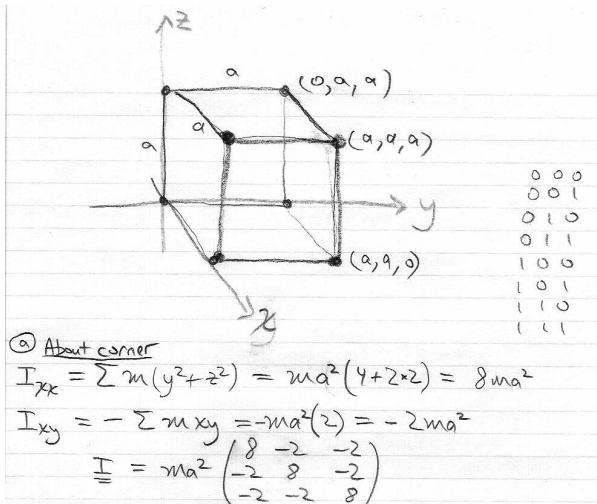 z
a
(0, a, a)
a
(a, a, a)
a
y
(a, a, 0)
x
0 0 0
0 0 1
0 1 0
0 1 1
1 0 0
1 0 1
1 1 0
1 1 1
(a) About corner
I_xx = Σ m(y² + z²) = ma²(4 + 2*2) = 8ma²
I_xy = - Σ m x y = -ma²(2) = - 2ma²
I = ma² ( 8 -2 -2
-2 8 -2
-2 -2 8 )